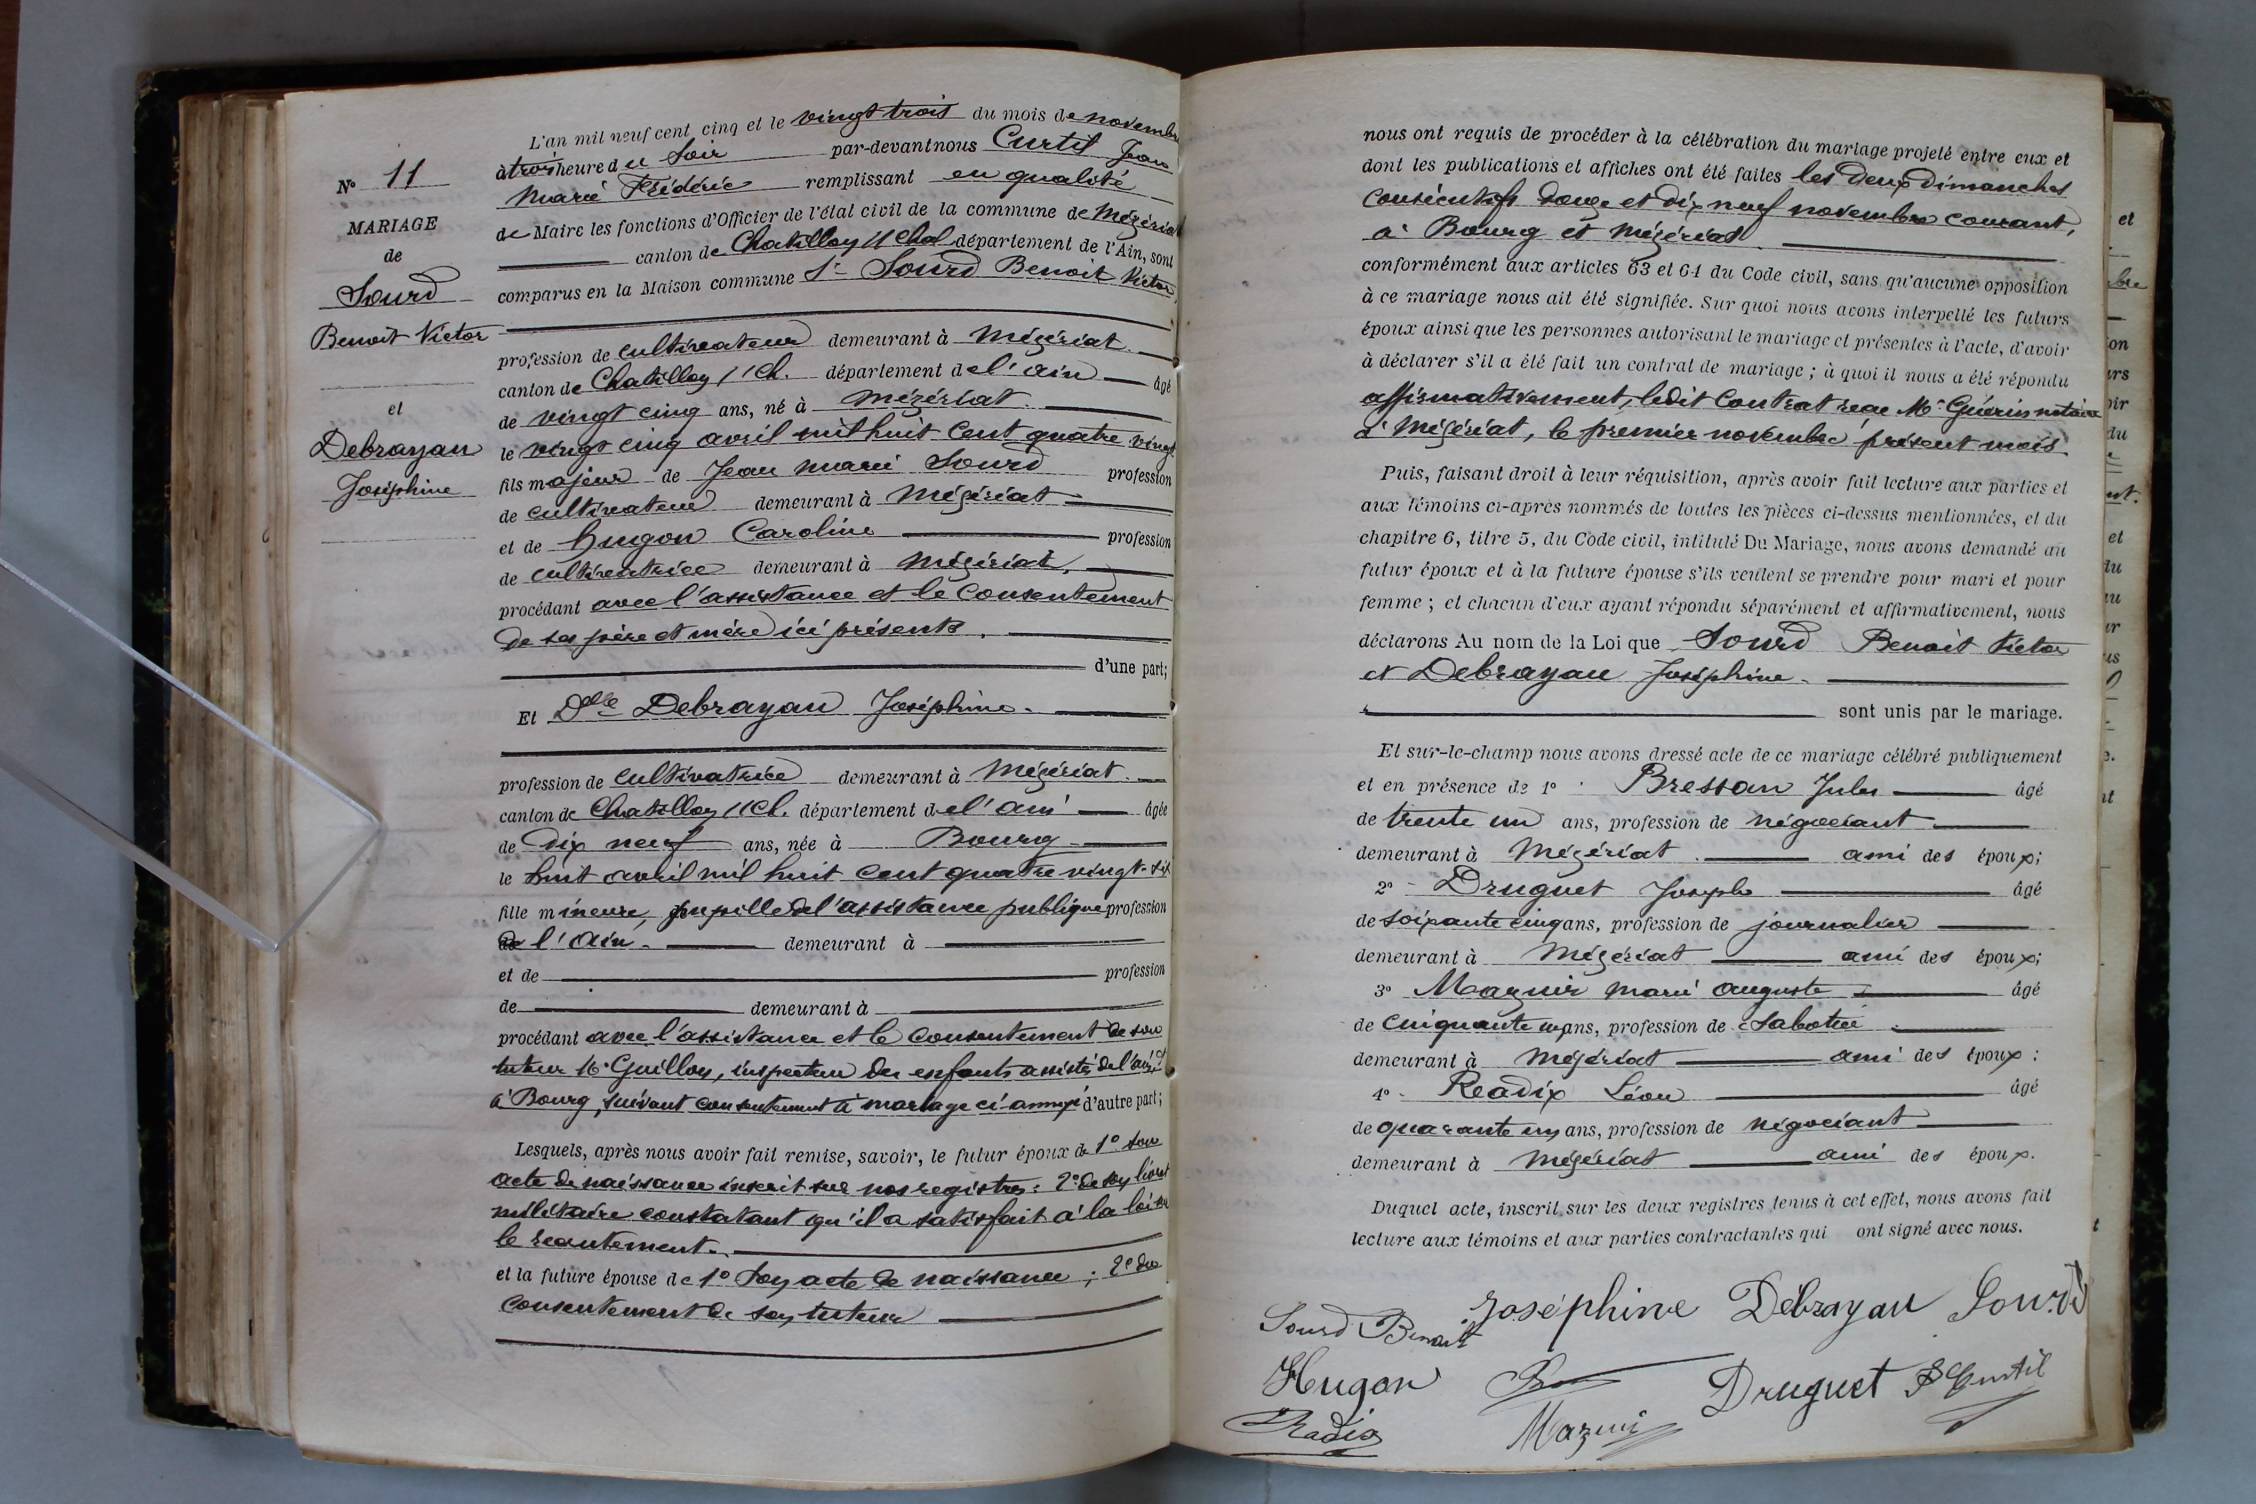 N° 11
MARIAGE
de
Sourd
Benoit Victor
et
Debrayau
Joséphine
L'an mil neuf cent cinq et le vingt trois du mois de novembre
à trois heure du soir par-devant nous Curtil Jean
Marie Frédéric remplissant en qualité
de Maire les fonctions d'Officier de l'état civil de la commune de Mézériat
canton de Chatillon s/ Chal. département de l'Ain, sont
comparus en la Maison commune Sr Sourd Benoit Victor,
profession de cultivateur demeurant à Mézériat.
canton de Chatillon s/ Ch. département de l'ain âgé
de vingt cinq ans, né à Mézériat.
le vingt cinq avril mil huit cent quatre vingt
fils majeur de Jean Marie Sourd profession
de cultivateur demeurant à Mézériat
et de Hugon Caroline profession
de cultivatrice demeurant à Mézériat,
procédant avec l'assistance et le consentement
de ses père et mère ici présents.
d'une part;
Et Delle Debrayau Joséphine.
profession de cultivatrice demeurant à Mézériat.
canton de Chatillon s/ Ch. département de l'ain âgée
de dix neuf ans, née à Bourg
le huit avril mil huit cent quatre vingt-six
fille mineure, pupille de l'assistance publique profession
de l'Ain. demeurant à
et de profession
de demeurant à
procédant avec l'assistance et le consentement de son
tuteur Mr Guillon, inspecteur des enfants assistés de l'ain,
à Bourg, suivant consentement à mariage ci-annexé d'autre part;
Lesquels, après nous avoir fait remise, savoir, le futur époux de 1° son
acte de naissance inscrit sur nos registres: 2° de son livret
militaire constatant qu'il a satisfait à la loi sur
le recrutement.
et la future épouse de 1° son acte de naissance; 2° du
consentement de son tuteur
nous ont requis de procéder à la célébration du mariage projeté entre eux et
dont les publications et affiches ont été faites les deux dimanches
consécutifs douze et dix neuf novembre courant,
à Bourg et Mézériat.
conformément aux articles 63 et 64 du Code civil, sans qu'aucune opposition
à ce mariage nous ait été signifiée. Sur quoi nous avons interpellé les futurs
époux ainsi que les personnes autorisant le mariage et présentes à l'acte, d'avoir
à déclarer s'il a été fait un contrat de mariage; à quoi il nous a été répondu
affirmativement, ledit contrat reçu Me Guérin notaire
à Mézériat, le premier novembre présent mois.
Puis, faisant droit à leur réquisition, après avoir fait lecture aux parties et
aux témoins ci-après nommés de toutes les pièces ci-dessus mentionnées, et du
chapitre 6, titre 5, du Code civil, intitulé Du Mariage, nous avons demandé au
futur époux et à la future épouse s'ils veulent se prendre pour mari et pour
femme; et chacun d'eux ayant répondu séparément et affirmativement, nous
déclarons Au nom de la Loi que Sourd Benoit Victor
et Debrayau Joséphine.
sont unis par le mariage.
Et sur-le-champ nous avons dressé acte de ce mariage célébré publiquement
et en présence de 1° Bressan Jules âgé
de trente un ans, profession de négociant
demeurant à Mézériat ami des époux;
2° Druguet Joseph âgé
de soixante cinq ans, profession de journalier
demeurant à Mézériat ami des époux;
3° Mazuir Marie Auguste âgé
de cinquante un ans, profession de Sabotier
demeurant à Mézériat ami des époux:
4° Readix Léon âgé
de quarante un ans, profession de négociant
demeurant à Mézériat ami des époux.
Duquel acte, inscrit sur les deux registres tenus à cet effet, nous avons fait
lecture aux témoins et aux parties contractantes qui ont signé avec nous.
Sourd Benoit Joséphine Debrayau Sourd
Hugon Druguet Curtil
Radix Mazuir